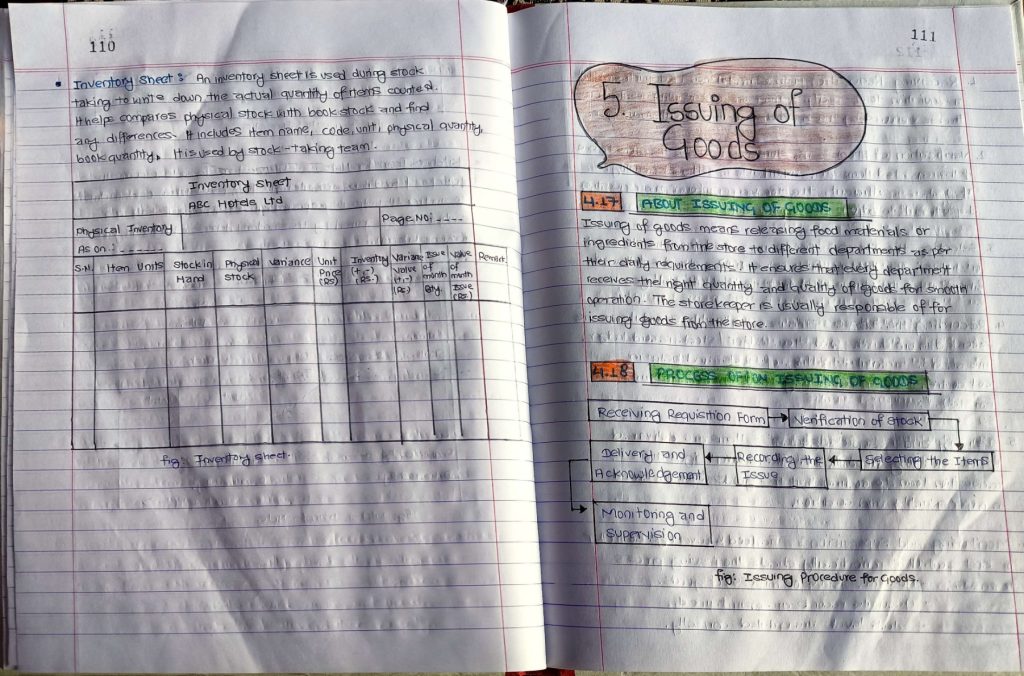 110
• Inventory Sheet: An inventory sheet is used during stock
taking to write down the actual quantity of items counted.
It helps compares physical stock with book stock and find
any differences. It includes item name, code, unit, physical quantity,
book quantity. It is used by stock-taking team.
Inventory Sheet
ABC Hotels Ltd
Physical Inventory
Page No: ----
As on: ------
S.N. Item Units Stock in Hand Physical stock Variance Unit Price (RS) Inventory (+,-) (RS.) Variance Value (+,-) (RS) Issue of month Qty. Value of month Issue (RS) Remark
fig: Inventory sheet.
111
5. Issuing of
Goods
4.17 ABOUT ISSUING OF GOODS
Issuing of goods means releasing food materials or
ingredients from the store to different departments as per
their daily requirements. It ensures that every department
receives the right quantity and quality of goods for smooth
operation. The storekeeper is usually responsible of for
issuing goods from the store.
4.18 PROCESS OF ON ISSUING OF GOODS
Receiving Requisition Form → Verification of Stock
Delivery and Acknowledgement ← Recording the Issue ← Selecting the Items
Monitoring and
supervision
fig: Issuing Procedure for Goods.